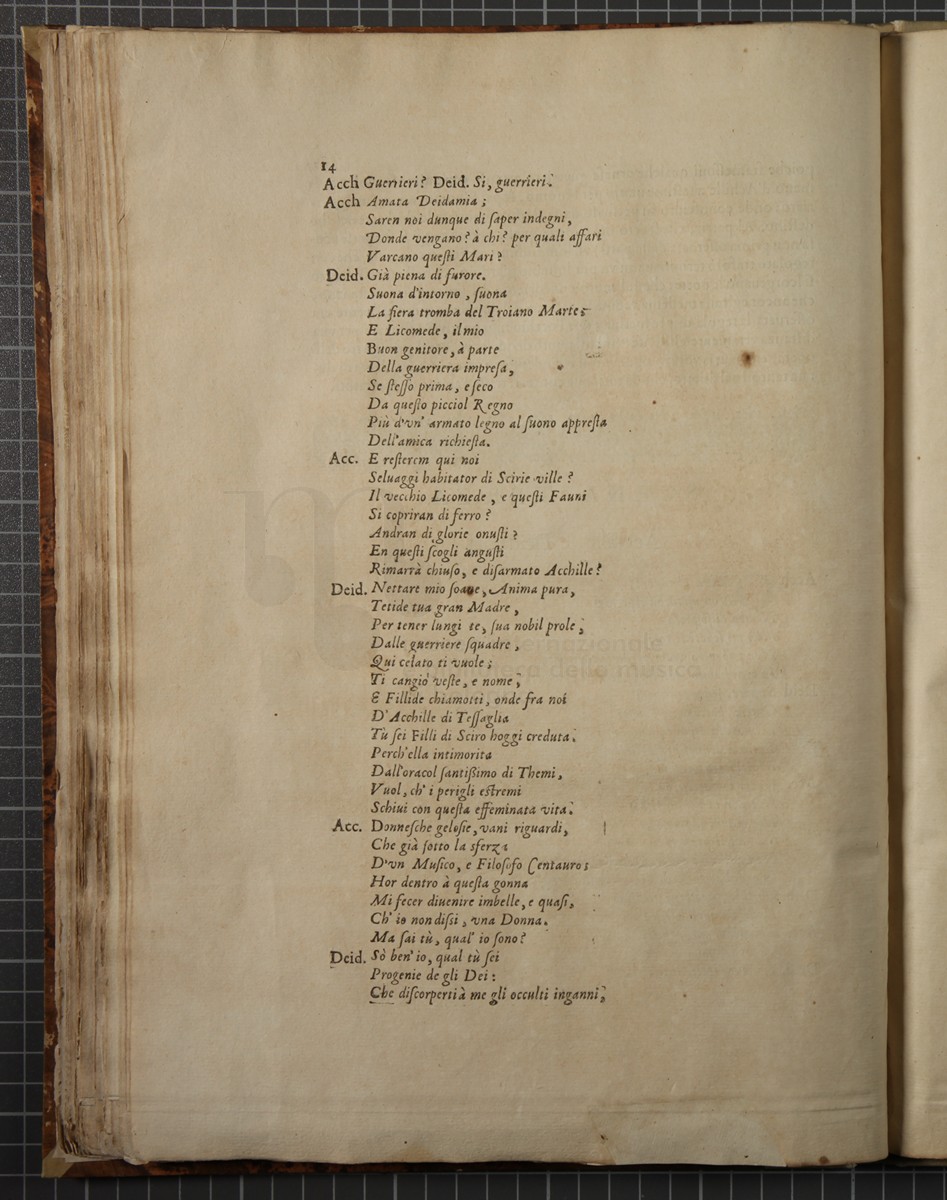 14
Acch Guerrieri? Deid. Si, guerrieri.
Acch Amata Deidamia;
Saren noi dunque di ſaper indegni,
Donde vengano? à chi? per quali affari
Varcano queſti Mari?
Deid. Già piena di furore.
Suona d'intorno, ſuona
La fiera tromba del Troiano Marte:
E Licomede, il mio
Buon genitore, à parte
Della guerriera impreſa,
Se ſteſſo prima, e ſeco
Da queſto picciol Regno
Più d'vn' armato legno al ſuono appreſta
Dell'amica richieſta.
Acc. E reſterem qui noi
Seluaggi habitator di Scirie ville?
Il vecchio Licomede, e queſti Fauni
Si copriran di ferro?
Andran di glorie onuſti?
En queſti ſcogli anguſti
Rimarrà chiuſo, e diſarmato Acchille?
Deid. Nettare mio ſoaue, Anima pura,
Tetide tua gran Madre,
Per tener lungi te, ſua nobil prole,
Dalle guerriere ſquadre,
Qui celato ti vuole;
Ti cangiò veſte, e nome,
E Fillide chiamotti, onde fra noi
D'Acchille di Teſſaglia
Tù ſei Filli di Sciro hoggi creduta.
Perch'ella intimorita
Dall'oracol ſantiſſimo di Themi,
Vuol, ch' i perigli eſtremi
Schiui con queſta effeminata vita.
Acc. Donneſche geloſie, vani riguardi,
Che già ſotto la sferza
D'vn Muſico, e Filoſofo Centauro;
Hor dentro à queſta gonna
Mi fecer diuenire imbelle, e quaſi,
Ch' io non diſſi, vna Donna.
Ma ſai tù, qual' io ſono?
Deid. Sò ben' io, qual tù ſei
Progenie de gli Dei:
Che diſcorperti à me gli occulti inganni,
internazionale
della musica